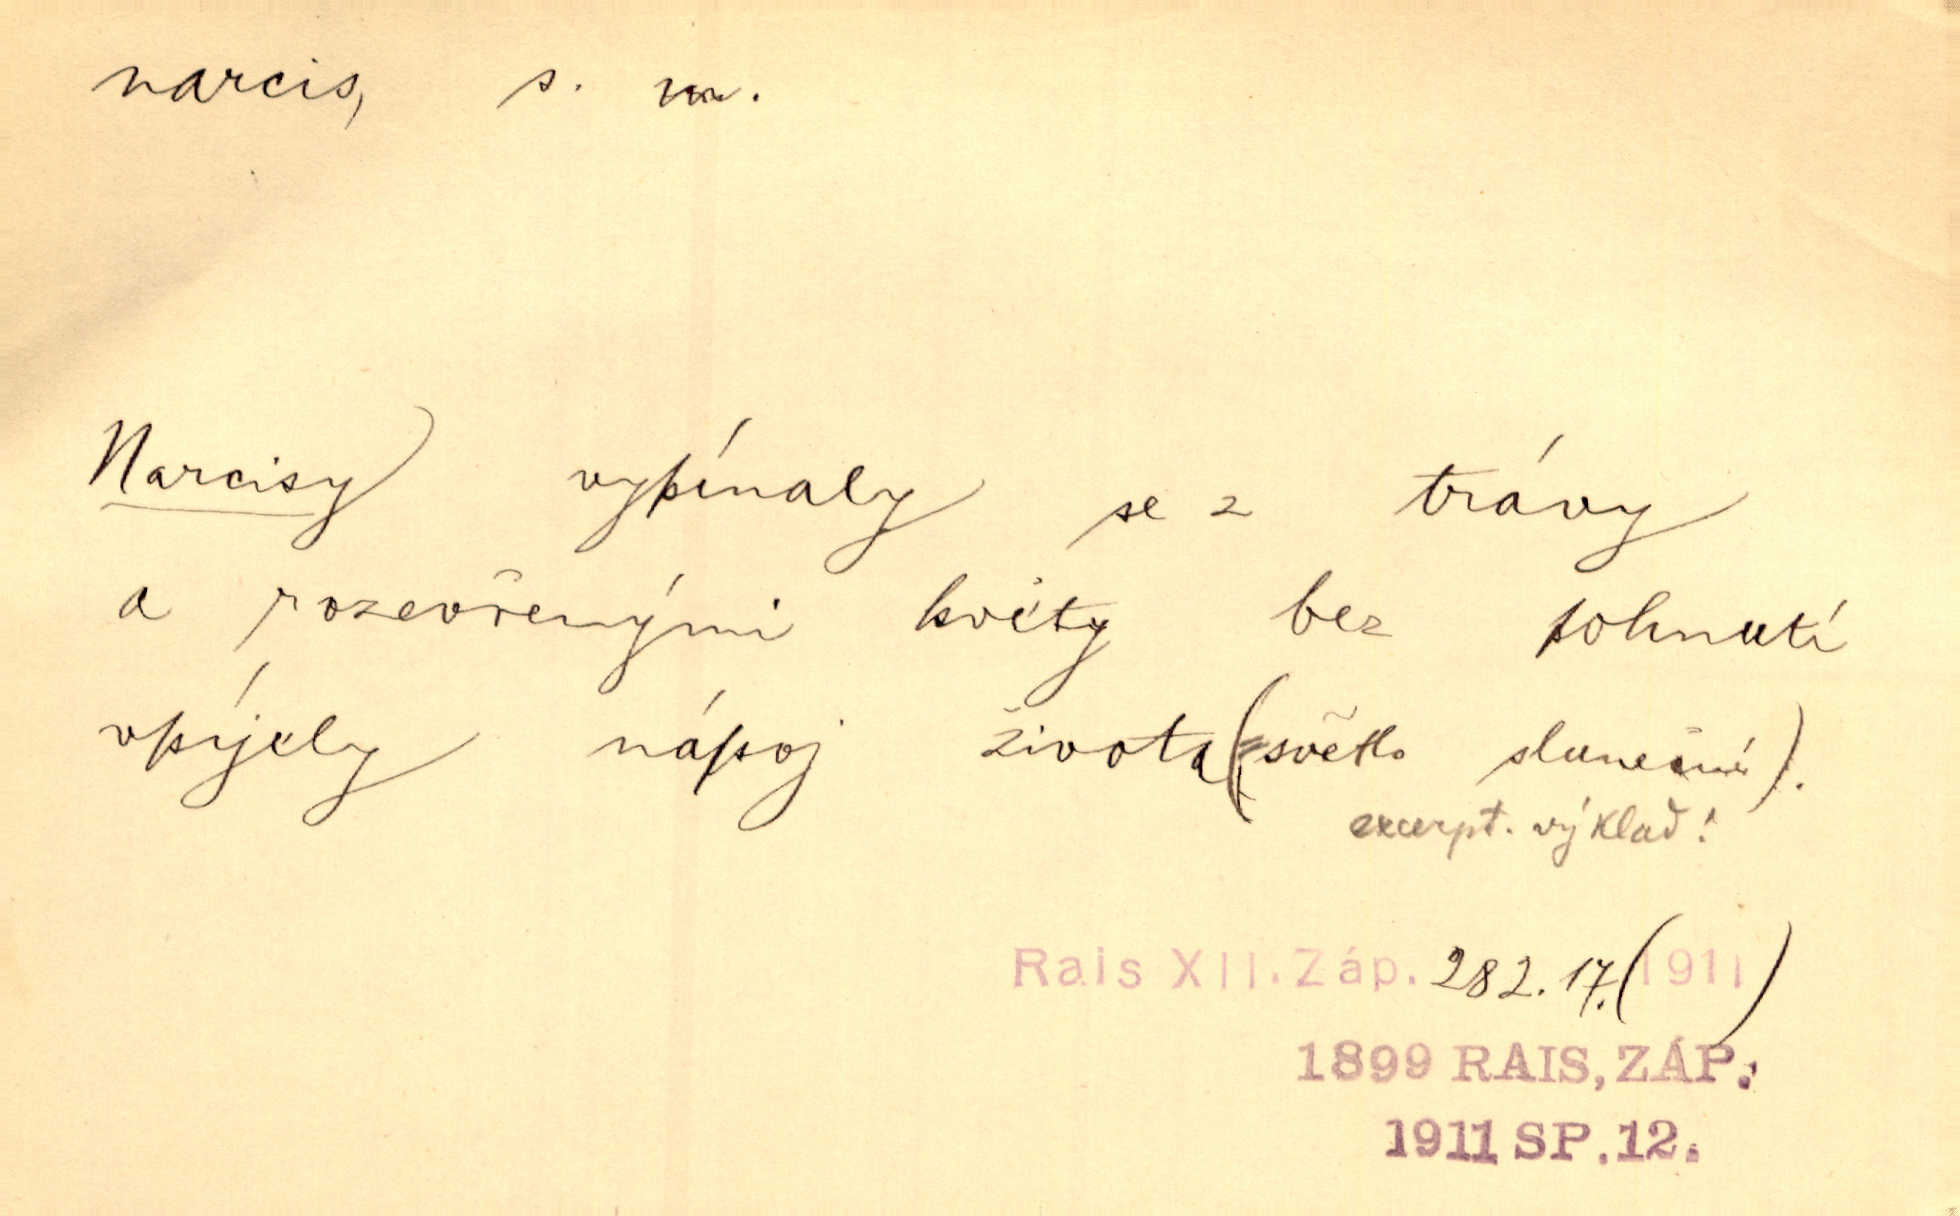 narcis, s. m.
Narcisy vypínaly se z trávy
a rozevřenými květy bez pohnutí
vpíjely nápoj života (= světlo sluneční).
excerpt. výklad!
Rais XII. Záp. 282. 17. (1911)
1899 RAIS, ZÁP.
1911 SP. 12.